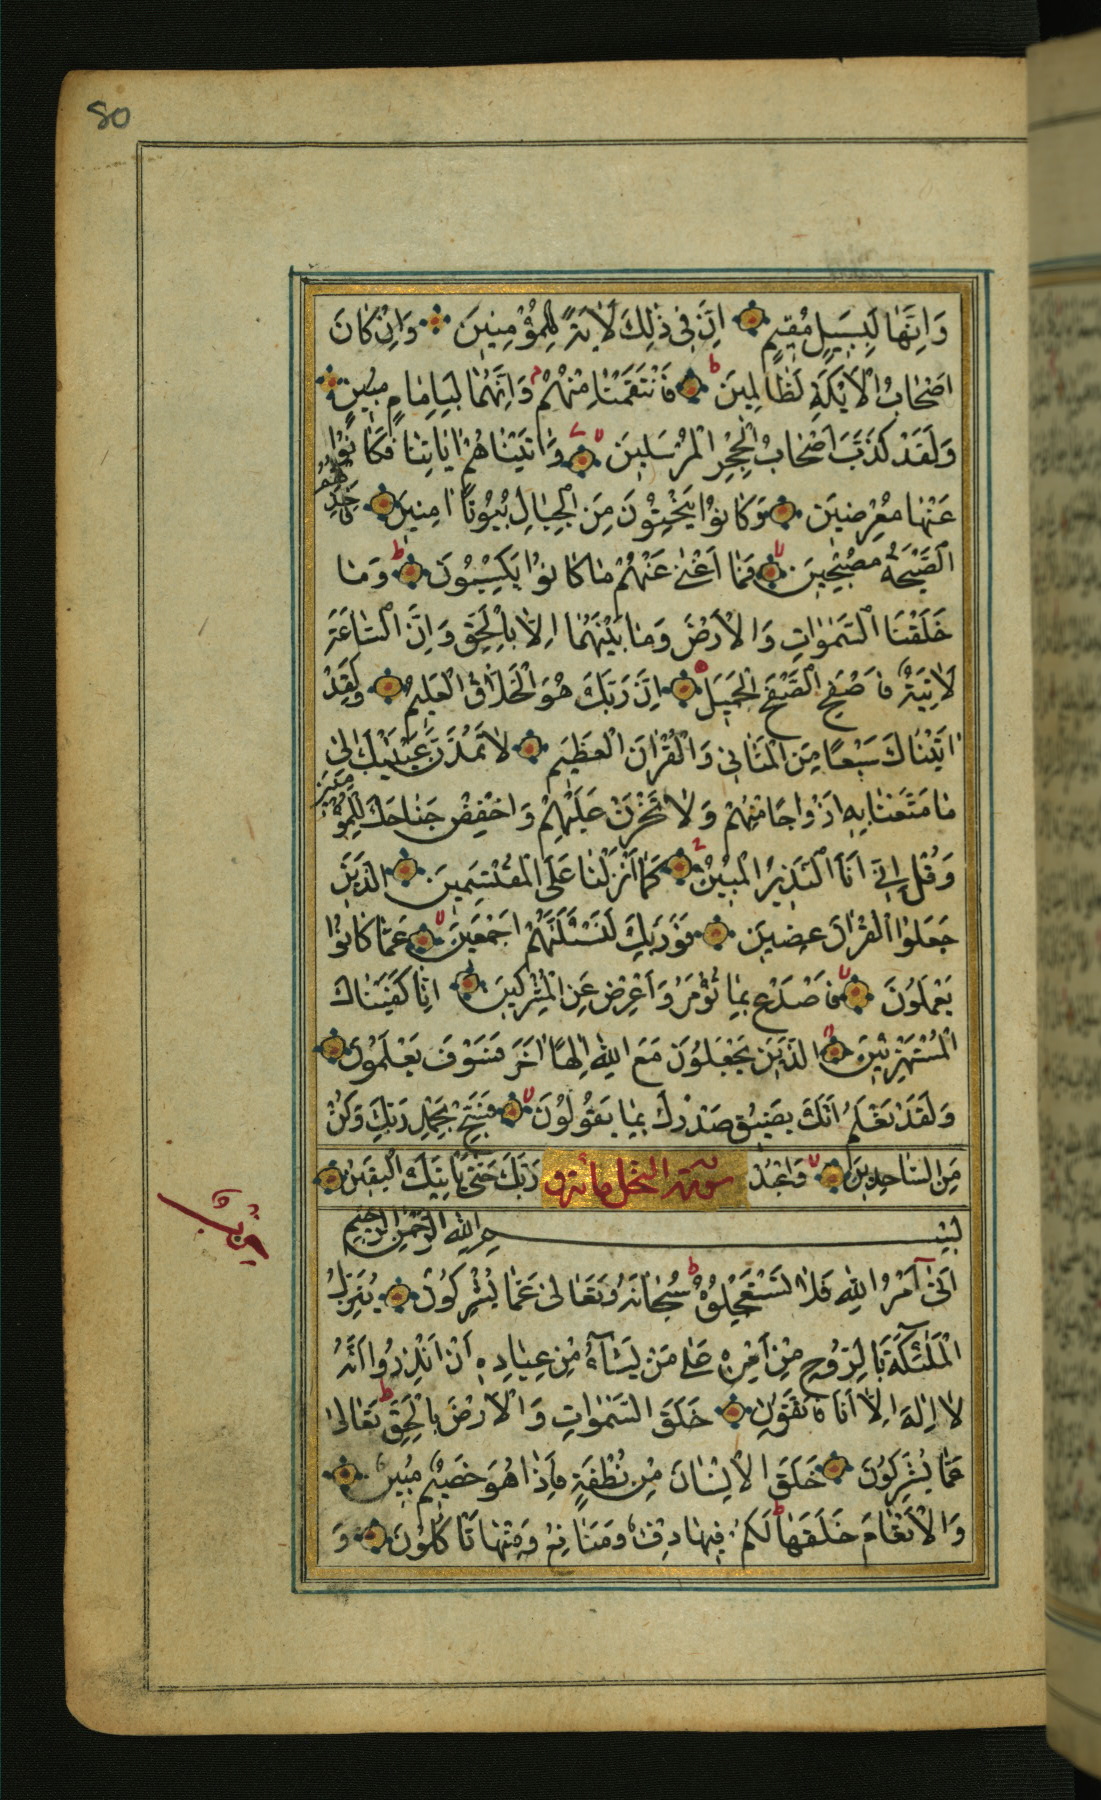 80
وَاِنَّهَا لَبِسَبِيلٍ مُقِيمٍ اِنَّ فِي ذٰلِكَ لَاٰيَةً لِلْمُؤْمِنِينَ وَاِنْ كَانَ
اَصْحَابُ الْاَيْكَةِ لَظَالِمِينَ فَانْتَقَمْنَا مِنْهُمْ وَاِنَّهُمَا لَبِاِمَامٍ مُبِينٍ
وَلَقَدْ كَذَّبَ اَصْحَابُ الْحِجْرِ الْمُرْسَلِينَ وَاٰتَيْنَاهُمْ اٰيَاتِنَا فَكَانُوا
عَنْهَا مُعْرِضِينَ وَكَانُوا يَنْحِتُونَ مِنَ الْجِبَالِ بُيُوتًا اٰمِنِينَ فَاَخَذَتْهُمُ
الصَّيْحَةُ مُصْبِحِينَ فَمَا اَغْنٰى عَنْهُمْ مَا كَانُوا يَكْسِبُونَ وَمَا
خَلَقْنَا السَّمٰوَاتِ وَالْاَرْضَ وَمَا بَيْنَهُمَا اِلَّا بِالْحَقِّ وَاِنَّ السَّاعَةَ
لَاٰتِيَةٌ فَاصْفَحِ الصَّفْحَ الْجَمِيلَ اِنَّ رَبَّكَ هُوَ الْخَلَّاقُ الْعَلِيمُ وَلَقَدْ
اٰتَيْنَاكَ سَبْعًا مِنَ الْمَثَانِي وَالْقُرْاٰنَ الْعَظِيمَ لَا تَمُدَّنَّ عَيْنَيْكَ اِلٰى
مَا مَتَّعْنَا بِهِ اَزْوَاجًا مِنْهُمْ وَلَا تَحْزَنْ عَلَيْهِمْ وَاخْفِضْ جَنَاحَكَ لِلْمُؤْمِنِينَ
وَقُلْ اِنِّي اَنَا النَّذِيرُ الْمُبِينُ كَمَا اَنْزَلْنَا عَلَى الْمُقْتَسِمِينَ الَّذِينَ
جَعَلُوا الْقُرْاٰنَ عِضِينَ فَوَرَبِّكَ لَنَسْئَلَنَّهُمْ اَجْمَعِينَ عَمَّا كَانُوا
يَعْمَلُونَ فَاصْدَعْ بِمَا تُؤْمَرُ وَاَعْرِضْ عَنِ الْمُشْرِكِينَ اِنَّا كَفَيْنَاكَ
الْمُسْتَهْزِئِينَ الَّذِينَ يَجْعَلُونَ مَعَ اللّٰهِ اِلٰهًا اٰخَرَ فَسَوْفَ يَعْلَمُونَ
وَلَقَدْ نَعْلَمُ اَنَّكَ يَضِيقُ صَدْرُكَ بِمَا يَقُولُونَ فَسَبِّحْ بِحَمْدِ رَبِّكَ وَكُنْ
مِنَ السَّاجِدِينَ وَاعْبُدْ سورة النحل مائة و رَبَّكَ حَتّٰى يَاْتِيَكَ الْيَقِينُ
بِسْمِ اللّٰهِ الرَّحْمٰنِ الرَّحِيمِ
اَتٰى اَمْرُ اللّٰهِ فَلَا تَسْتَعْجِلُوهُ سُبْحَانَهُ وَتَعَالٰى عَمَّا يُشْرِكُونَ يُنَزِّلُ
الْمَلٰئِكَةَ بِالرُّوحِ مِنْ اَمْرِهِ عَلٰى مَنْ يَشَاءُ مِنْ عِبَادِهِ اَنْ اَنْذِرُوا اَنَّهُ
لَا اِلٰهَ اِلَّا اَنَا فَاتَّقُونِ خَلَقَ السَّمٰوَاتِ وَالْاَرْضَ بِالْحَقِّ تَعَالٰى
عَمَّا يُشْرِكُونَ خَلَقَ الْاِنْسَانَ مِنْ نُطْفَةٍ فَاِذَا هُوَ خَصِيمٌ مُبِينٌ
وَالْاَنْعَامَ خَلَقَهَا لَكُمْ فِيهَا دِفْءٌ وَمَنَافِعُ وَمِنْهَا تَاْكُلُونَ وَ